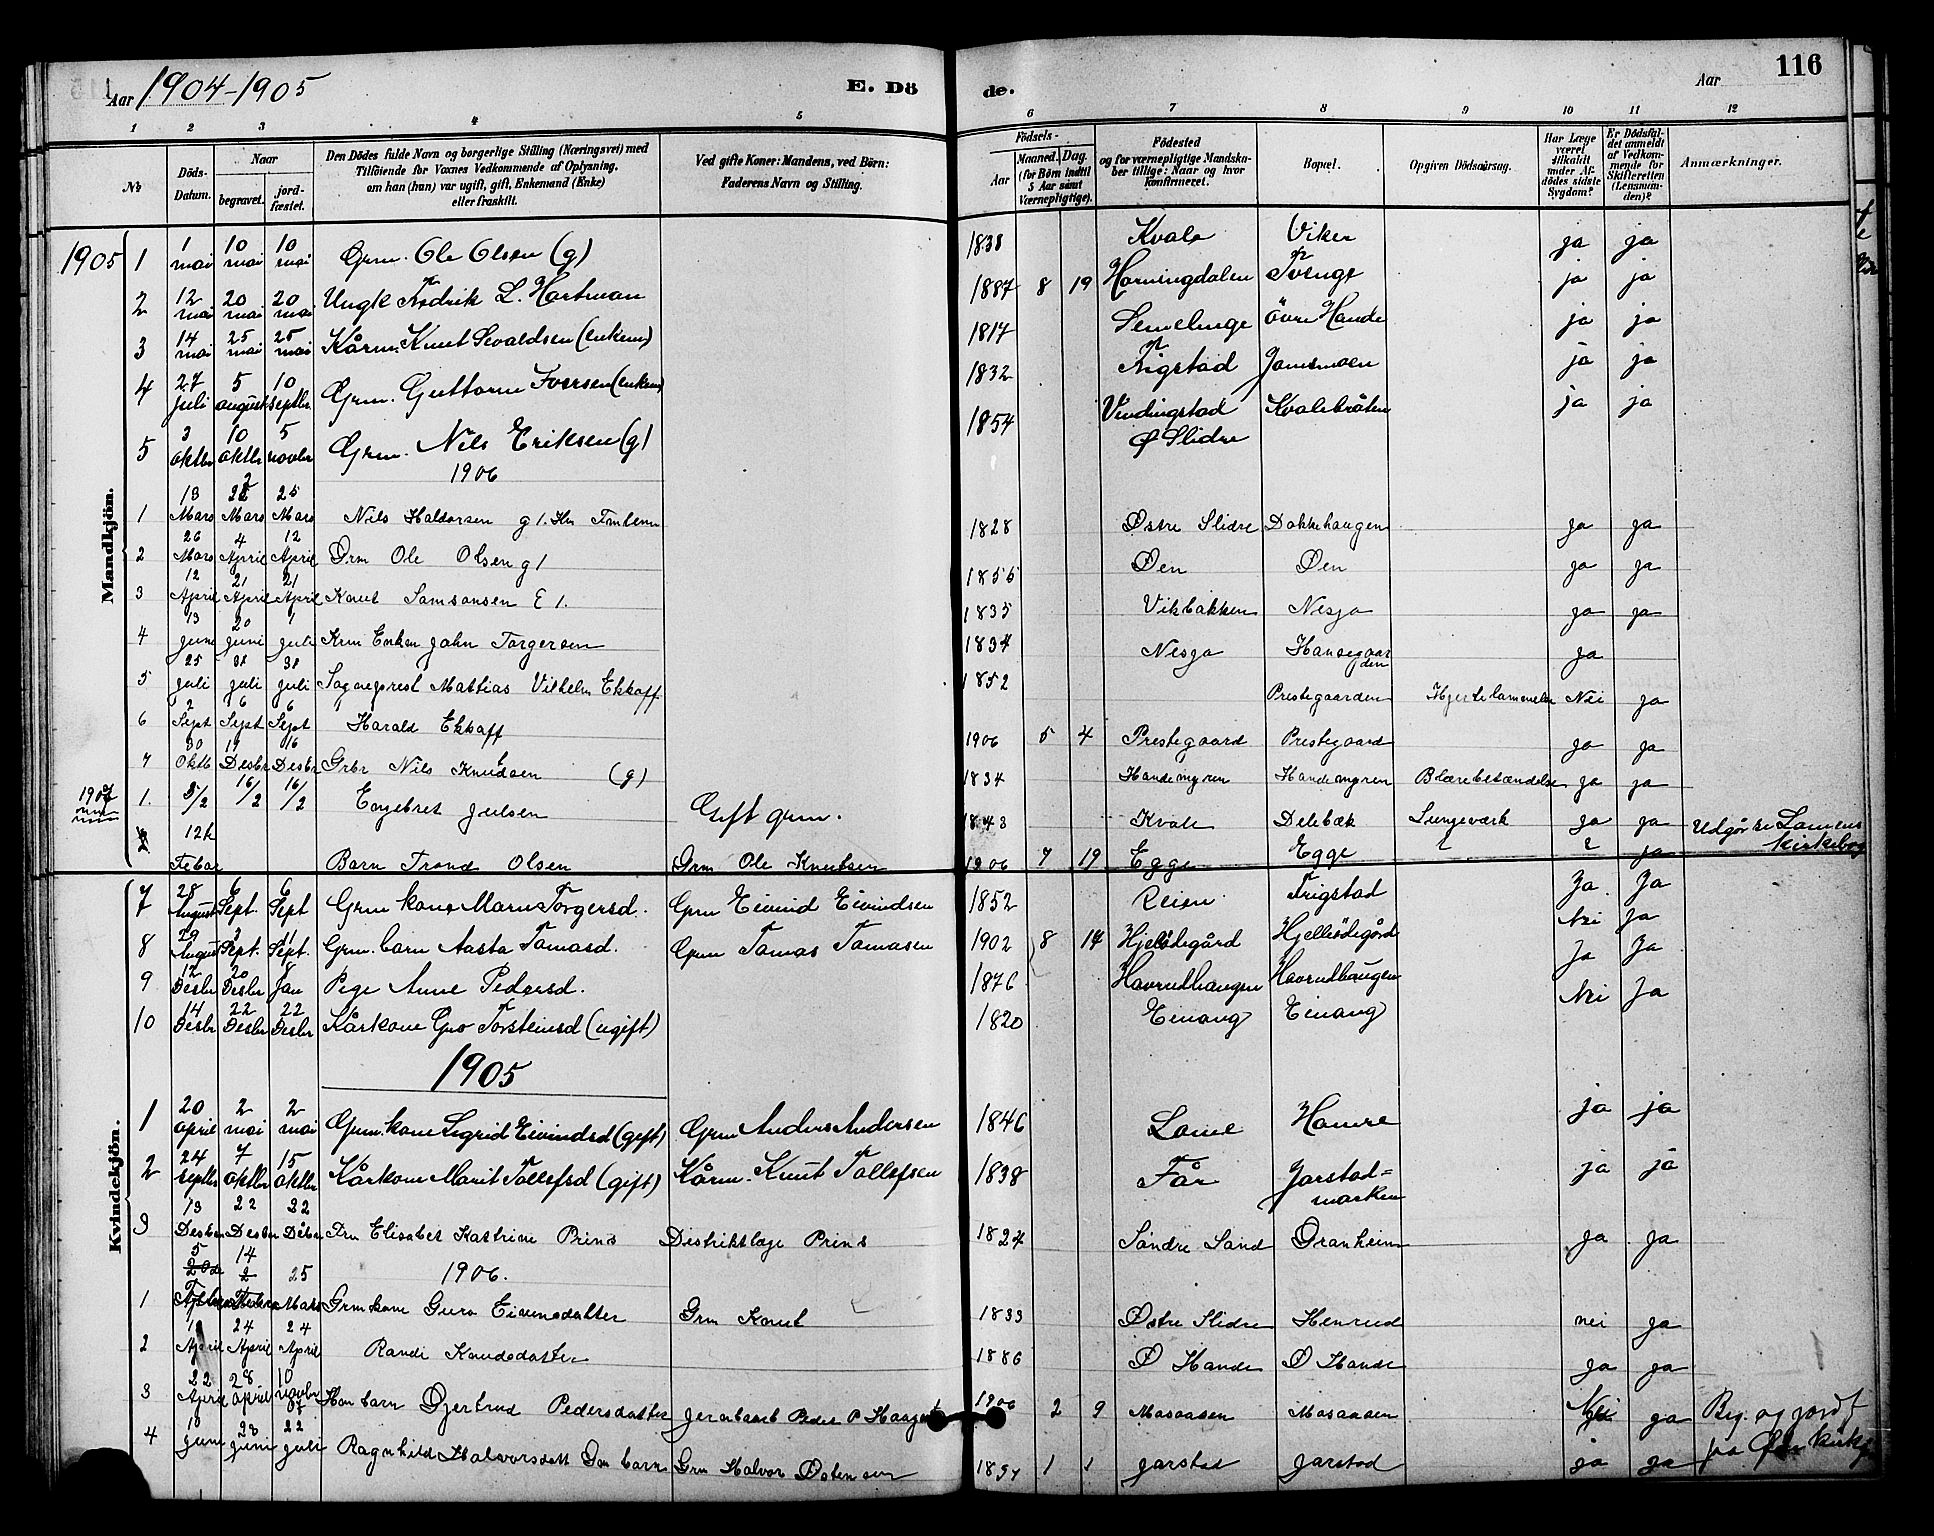 Aar 1904-1905 E. Dö
de. Aar 116
1 2 3 4 5 6 7 8 9 10 11 12
No
Döds-Datum.
Naar
begravet.
jord-fæstet.
Den Dödes fulde Navn og borgerlige Stilling (Næringsvei) med
Tilföiende for Voxnes Vedkommende af Oplysning,
om han (hun) var ugift, gift, Enkemand (Enke)
eller fraskilt.
Ved gifte Koner: Mandens, ved Börn:
Faderens Navn og Stilling.
Födsels-
Aar
Maaned. Dag.
(for Börn indtil
5 Aar samt
Værnepligtige).
Födested
og for værnepligtige Mandska-
ber tillige: Naar og hvor
Konfirmeret.
Bopæl.
Opgiven Dödsaarsag.
Har Læge
været
tilkaldt
under Af-
dödes sidste
Sygdom?
Er Dödsfal-
det anmeldt
af Vedkom-
mende for
Skifteretten
(Lensman-
den)?
Anmærkninger.
Mandkjön.
1905 1 1 mai 10 mai 10 mai Grm. Ole Olsen (g) 1838 Kvale Viken ja ja
2 12 mai 20 mai 20 mai Ungk Fredrik L. Hartman 1887 8 19 Horningdalen Tvenge ja ja
3 14 mai 25 mai 25 mai Kårm. Knut Sevaldsen (enkem) 1817 Semelenge övre Hande ja ja
4 27 juli 5 august 10 septbr Grm. Guttorm Iversen (enkem) 1832 Rigstad Jomsmoen ja ja
5 3 oktbr 10 oktbr 5 novbr Grm. Nils Eriksen (g) 1854 Vindingstad Kvalebråten ja ja
Ø Slidre
1906
1 13 Mars 22 Mars 25 Mars Nils Haldorsen g 1. 1828 Østre Slidre Dokkehaugen ja ja
2 26 Mars 4 April 12 April Grm Ole Olsen g 1 1855 Øen Øen ja ja
3 12 April 21 April 21 April Knut Samsonsen E 1. 1835 Vikbakken Nesja ja ja
4 13 juni 20 juni 1 juli Krm Enken John Torgersen 1834 Nesja Hansegaarden ja
5 25 juli 31 juli 31 juli Sogneprest Mattias Vilhelm Ekhoff 1852 Prestegaarden Hjertelammelse Nei ja
6 2 Sept 6 Sept 6 Sept Harald Ekhoff 1906 5 4 Prestegaard Prestegaard ja ja
7 30 Oktb 19 Desbr 16 Desbr Grbr Nils Knudsen (g) 1834 Handemyren Handemyren Blærebetændelse ja ja
1907 1. 5/2 16/2 16/2 Engebret Julsen Gift grm. 1843 Kvale Delebæk Lungeværk ja ja
12te Febar Barn Trond Olsen Grm Ole Knutsen 1906 7 19 Egge Egge ? ? ja Udgör se Lomens kirkebog
Kvindekjön.
7 28 August 6 Sept. 6 Sept Grm kone Marn Torgersd. Grm Eivind Eivindsen 1852 Reien Trigstad Ja. Ja
8 29 August 3 Sept. 11 Sept. Grm. barn Aasta Tomasd. Grm Tomas Tomasen 1902 8 14 Hjelledegård Hjelledegård Nei Ja
9 12 Desbr 20 Desbr 8 Jan Pige Anne Pedersd. 1876 Havrudhaugen Havrudhaugen Ja Ja
10 14 Desbr 22 Desbr 22 Desbr Kårkone Gro Torsteinsd (ugift) 1820 Einang Einang Nei Ja
1905
1 20 april 2 mai 2 mai Grm. kone Sigrid Eivindsd (gift) Grm Anders Andersen 1846 Lome Hamre ja ja
2 24 septbr 7 oktbr 15 oktbr Kårkone Marit Tollefsd (gift) Kårm. Knut Tollefsen 1838 Får Jarstad=marken ja ja
3 13 Desbr 22 Desbr 22 Dsbr Fru Elisabet Katrine Prins Distriktslæge Prins 1824 Söndre Land Granheim ja ja
1906.
1 5 14 25 Mars Grmkone Guro Eivindsdatter Grm Knut 1833 Østre Slidre Henrud nei ja
2 April 24 April 24 April Randi Knudsdatter 1886 Ø Hande Ø Hande ja ja
3 22 April 28 april 10 novbr 07 barn Gjertrud Pedersdatter Peder P Haugen 1906 2 9 Mosaasen Mosaasen Nei ja Beg. og jordf
4 juni 23 juni 22 juli Ragnhild Halvorsdatt Grm barn Grm Halvor Ostensen 1 1 Jarstad Jarstad ja ja paa kirkeg